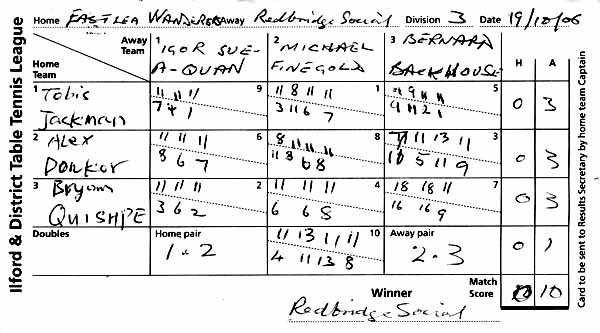 Home EASTLEA WANDERERS Away Redbridge Social Division 3 Date 19/10/06
Ilford & District Table Tennis League
Away Team
Home Team
1 IGOR SUE-A-QUAN
2 MICHAEL FINEGOLD
3 BERNARD BACKHOUSE
H A
1 Tobis Jackman
11 11 11 9
7 4 1
11 8 11 11 1
3 11 6 7
5
0 3
2 Alex Donkor
11 11 11 6
8 6 7
8 11 11 11 8
11 8 6 8
7 11 13 11 3
10 5 11 9
0 3
3 Bryom QUISHPE
11 11 11 2
3 6 2
11 11 11 4
6 6 8
18 18 11 7
16 16 9
0 3
Doubles
Home pair 1-2
11 13 11 11 10
4 11 13 8
Away pair 2-3
0 1
Winner Redbridge Social
Match Score 10
Card to be sent to Results Secretary by home team Captain